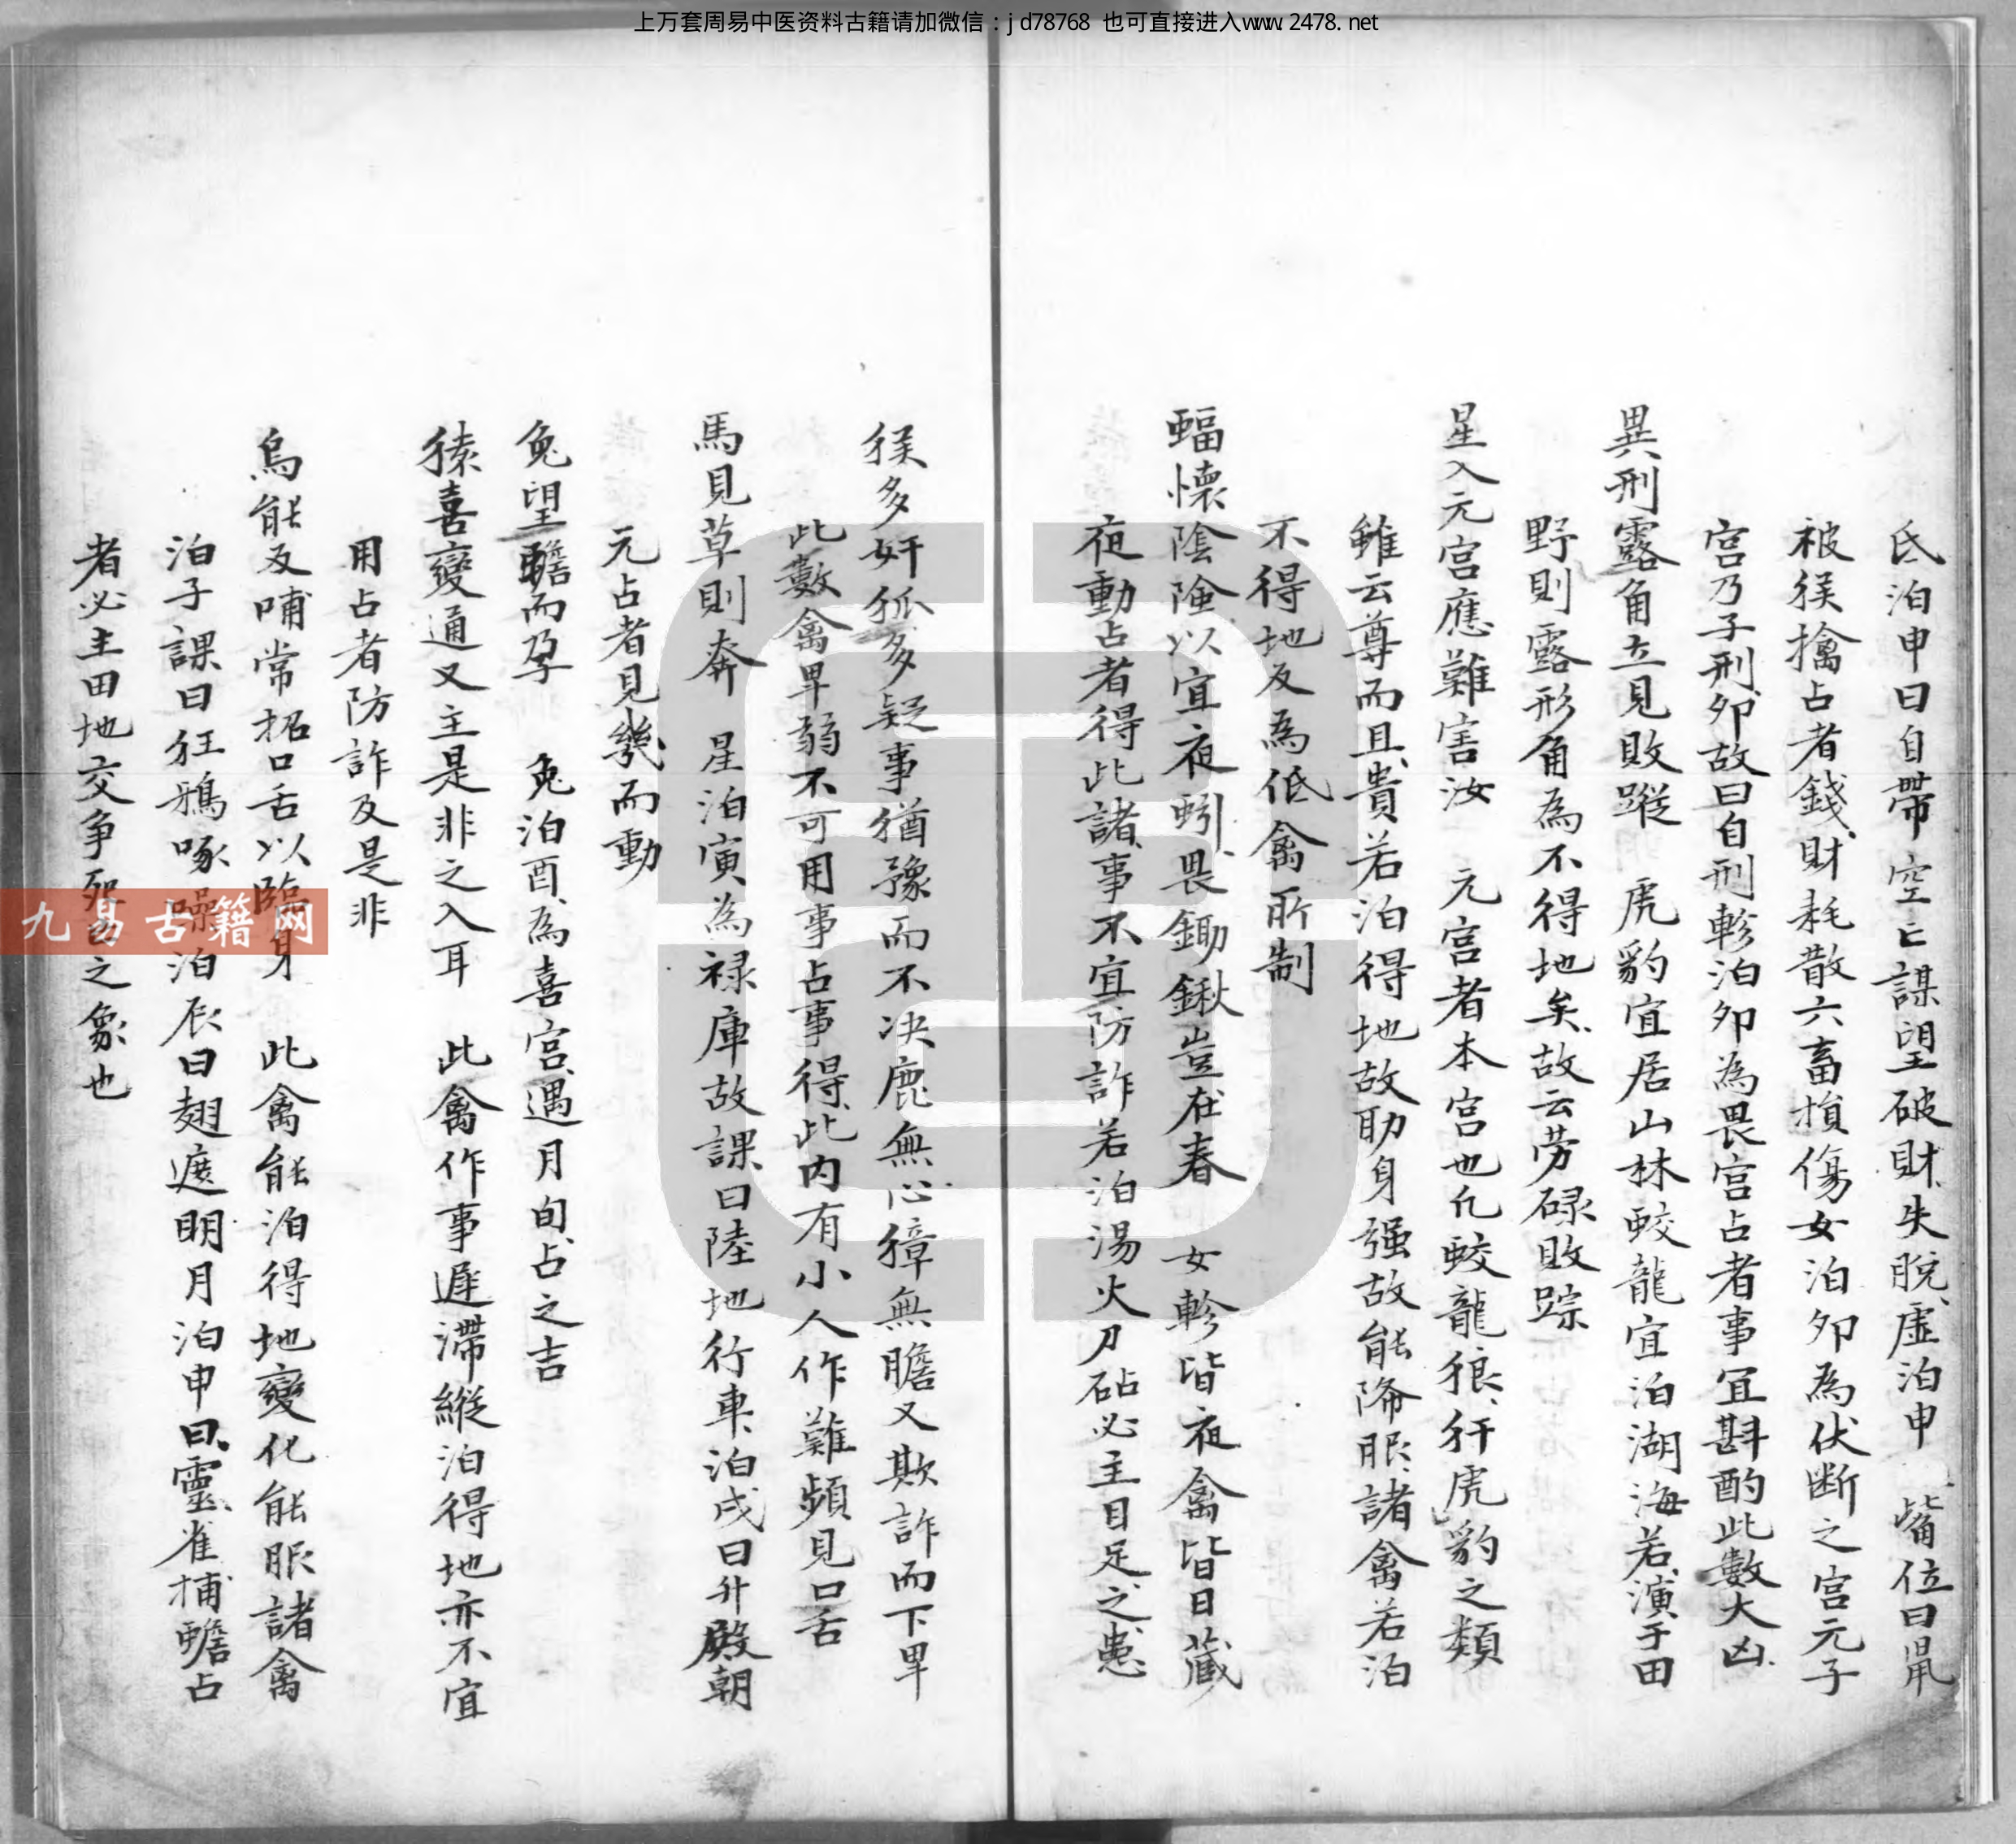 上万套周易中医资料古籍请加微信：jd78768 也可直接进入www.2478.net
氐泊申曰自帶空亡謀望破財失脫虛泊申 觜位曰鼠
被猴擒占者錢財耗散六畜損傷女泊卯為伏断之宫元子
宫乃子刑卯故曰自刑軫泊卯為畏宫占者事宜斟酌此數大凶
異刑露角立見敗蹤 虎豹宜居山林蛟龍宜泊湖海若演于田
野則露形角為不得地矣故云劳碌敗踪
星入元宫應難害汝 元宫者本宫也凡蛟龍狼犴虎豹之類
雖云尊而且貴若泊得地故助身强故能降眼諸禽若泊
不得地反為低禽所制
蝠懷陰險以宜夜蚓畏鋤鍬豈在春 女軫皆夜禽皆日藏
夜動占者得此諸事不宜防詐若泊湯火刀砧必主目足之患
猴多奸狐多疑事猶豫而不决鹿無心獐無膽又欺詐而下畢
此數禽卑弱不可用事占事得此内有小人作難頻見口舌
馬見草則奔 星泊寅為禄庫故課曰陸地行車泊戌曰升殿朝
元占者見幾而動
兔望蟾而孕 兔泊酉為喜宫遇月旬占之吉
猿喜變通又主是非之入耳 此禽作事遲滯縱泊得地亦不宜
用占者防詐及是非
烏能反哺常招口舌以臨身 此禽能泊得地變化能眼諸禽
泊子課曰狂鴉啄噪泊辰曰翅遮明月泊申曰靈雀捕蟾占
者必主田地交争之象也
九易古籍网